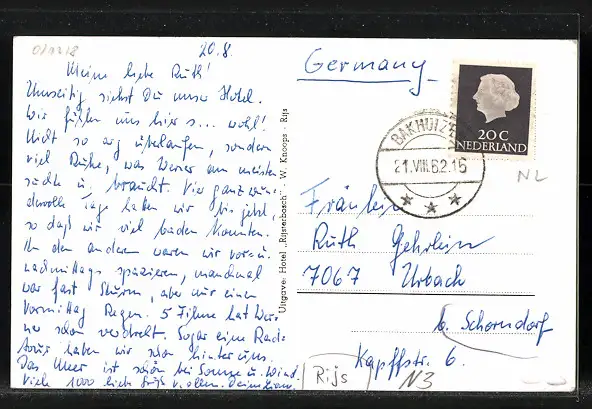 20.8.
Meine liebe Ruth!
Umseitig siehst Du unser Hotel.
Wir fühlen uns hier s... wohl!
Nicht so arg überlaufen, sondern
viel Ruhe, was Werner am meisten
sucht u. braucht. Vier ganz wun-
dervolle Tage haben wir bis jetzt,
so daß wir viel baden konnten.
In den anderen waren wir vor- u.
nachmittags spazieren, manchmal
war fast Sturm, aber nur einen
Vormittag Regen. 5 Filme hat Wer-
ner schon verdreht. Sogar eine Rad-
tour haben wir schon hinter uns.
Das Meer ist schön bei Sonne u. Wind.
Viele 1000 lieb. Grüße v. allen.
Uitgave: Hotel „Rijsterbosch" - W. Knoops - Rijs
Germany
BAKHUIZEN
21.VIII.62.15
20 C
NEDERLAND
NL
Fräulein
Ruth Gehrlein
7067 Urbach
b. Schorndorf
Kapffstr. 6.
Rijs
N3